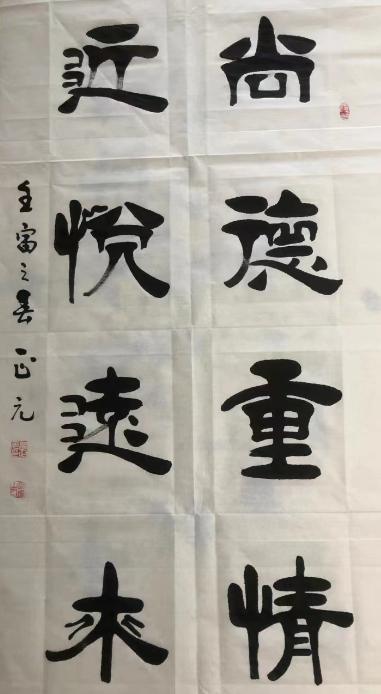 尚德重情
近悦远来
壬寅之春 正元